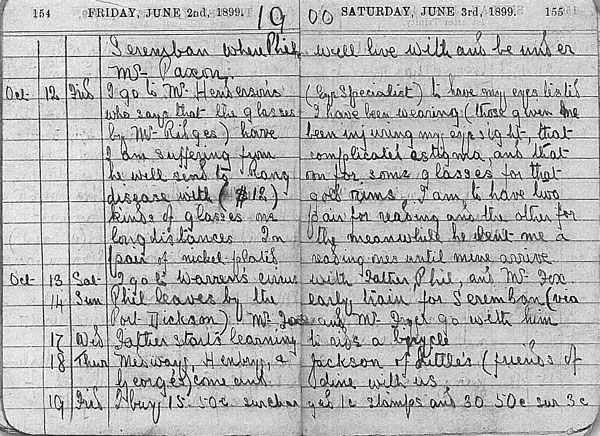 154 FRIDAY, JUNE 2nd, 1899. 19 00 SATURDAY, JUNE 3rd, 1899. 155
Seremban where Phil will live with and be under
Mr Paxon.
Oct 12 Fri I go to Mr Henderson's (Eye Specialist) to have my eyes tested
who says that the glasses I have been wearing (those given me
by Mr Ridges) have been injuring my eyesight, that
I am suffering from complicated astigma, and that
he will send to on for some glasses for that
disease with ($12) gold rims, I am to have two
kinds of glasses one pair for reading and the other for
long distances In the meanwhile he lent me a
pair of nickel-plated reading ones until mine arrive
Oct 13 Sat I go to Warren's circus with Father, Phil, and Mr Fox
14 Sun Phil leaves by the early train for Seremban (via
Port Dickson) Mr and Mr go with him
17 Wed Father starts learning to ride a bicycle
18 Thur Medways, & Jackson of Littles (friends of
George's) come and dine with us
19 Fri I buy 15 50c surchar ged 1c stamps and 30 50c sur 3c